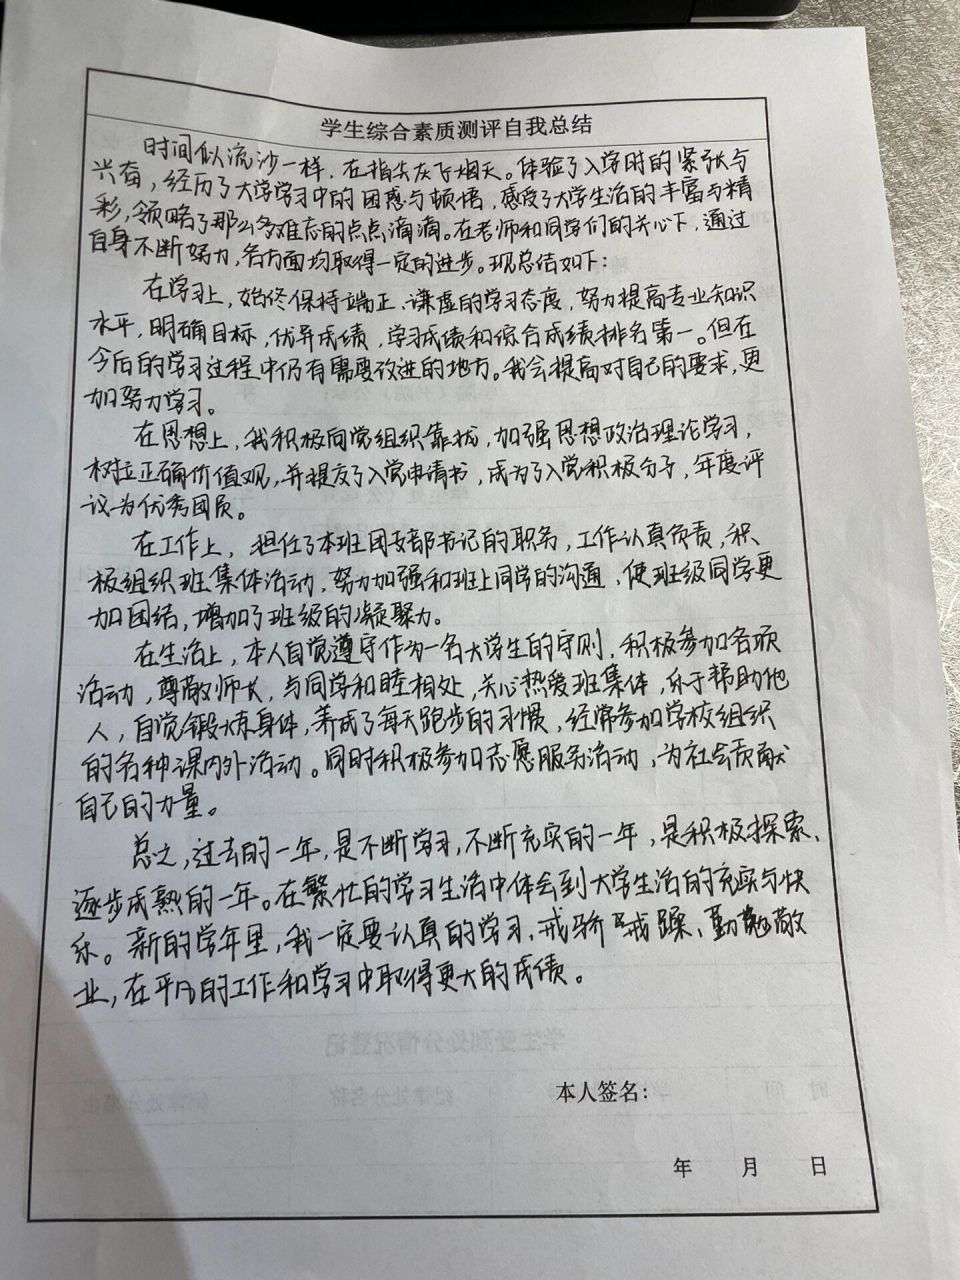 学生综合素质测评自我总结
时间似流沙一样，在指尖灰飞烟灭。体验了入学时的紧张与
兴奋，经历了大学学习中的困惑与顿悟，感受了大学生活的丰富与精
彩，领略了那么多难忘的点点滴滴。在老师和同学们的关心下，通过
自身不断努力，各方面均取得一定的进步。现总结如下：
在学习上，始终保持端正、谦虚的学习态度，努力提高专业知识
水平，明确目标，优异成绩，学习成绩和综合成绩排名第一。但在
今后的学习过程中仍有需要改进的地方。我会提高对自己的要求，更
加努力学习。
在思想上，我积极向党组织靠拢，加强思想政治理论学习，
树立正确价值观，并提交了入党申请书，成为了入党积极分子，年度评
议为优秀团员。
在工作上，担任了本班团支部书记的职务，工作认真负责，积
极组织班集体活动，努力加强和班上同学的沟通，使班级同学更
加团结，增加了班级的凝聚力。
在生活上，本人自觉遵守作为一名大学生的守则，积极参加各项
活动，尊敬师长，与同学和睦相处，关心热爱班集体，乐于帮助他
人，自觉锻炼身体，养成了每天跑步的习惯，经常参加学校组织
的各种课内外活动。同时积极参加志愿服务活动，为社会贡献
自己的力量。
总之，过去的一年，是不断学习，不断充实的一年，是积极探索、
逐步成熟的一年。在繁忙的学习生活中体会到大学生活的充实与快
乐。新的学年里，我一定要认真的学习，戒骄戒躁、勤勉敬
业，在平凡的工作和学习中取得更大的成绩。
本人签名：
年 月 日